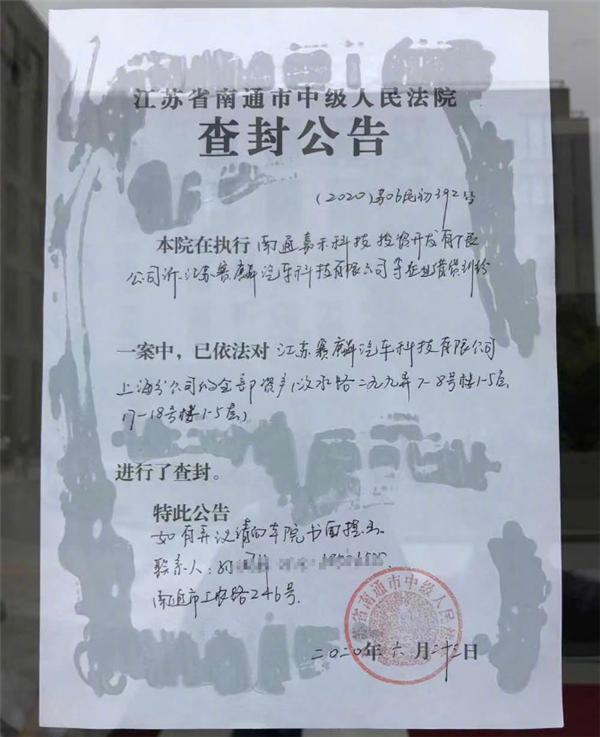 江苏省南通市中级人民法院
查封公告
(2020)苏06民初392号
本院在执行 南通嘉禾科技投资开发有限
公司诉江苏赛麟汽车科技有限公司等企业借贷纠纷
一案中，已依法对 江苏赛麟汽车科技有限公司
上海分公司的全部资产(汶水路二九九弄7-8号楼1-5层
17-18号楼1-5层)
进行了查封。
特此公告
如有异议请向本院书面提出
联系人：
南通市工农路246号.
省南通市中级人民
二0二0年六月二十三日